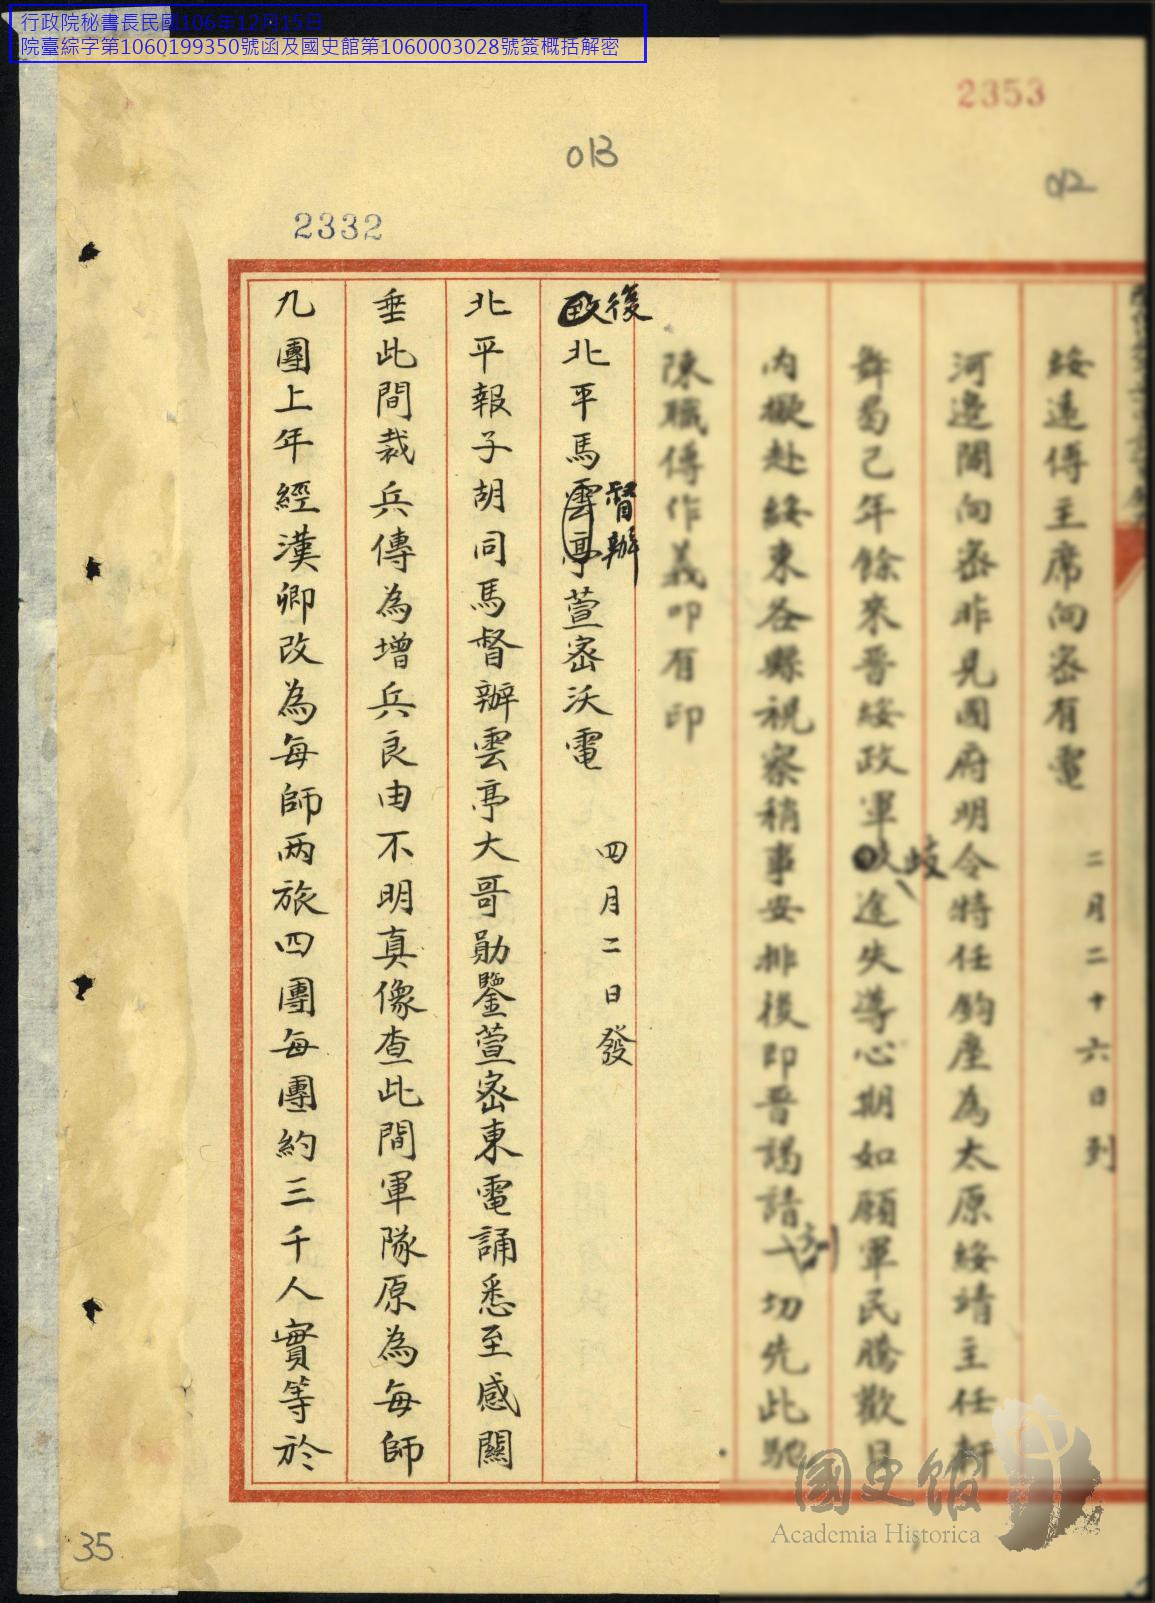 行政院秘書長民國106年12月15日
院臺綜字第1060199350號函及國史館第1060003028號簽概括解密
2353
013
012
2332
綏遠傅主席向密有電 二月二十六日到
河邊閻向密昨見國府明令特任鈞座為太原綏靖主任軒
舞曷已年餘來晉綏政軍歧途失導心期如願軍民騰歡日
內擬赴綏東各縣視察稍事安排後即晉謁請一切先此馳
陳職傅作義叩有印
復北平馬督辦萱密沃電 四月二日發
北平報子胡同馬督辦雲亭大哥勛鑒萱密東電誦悉至感關
垂此間裁兵傳為增兵良由不明真像查此間軍隊原為每師
九團上年經漢卿改為每師兩旅四團每團約三千人實等於
35
國史館
Academia Historica